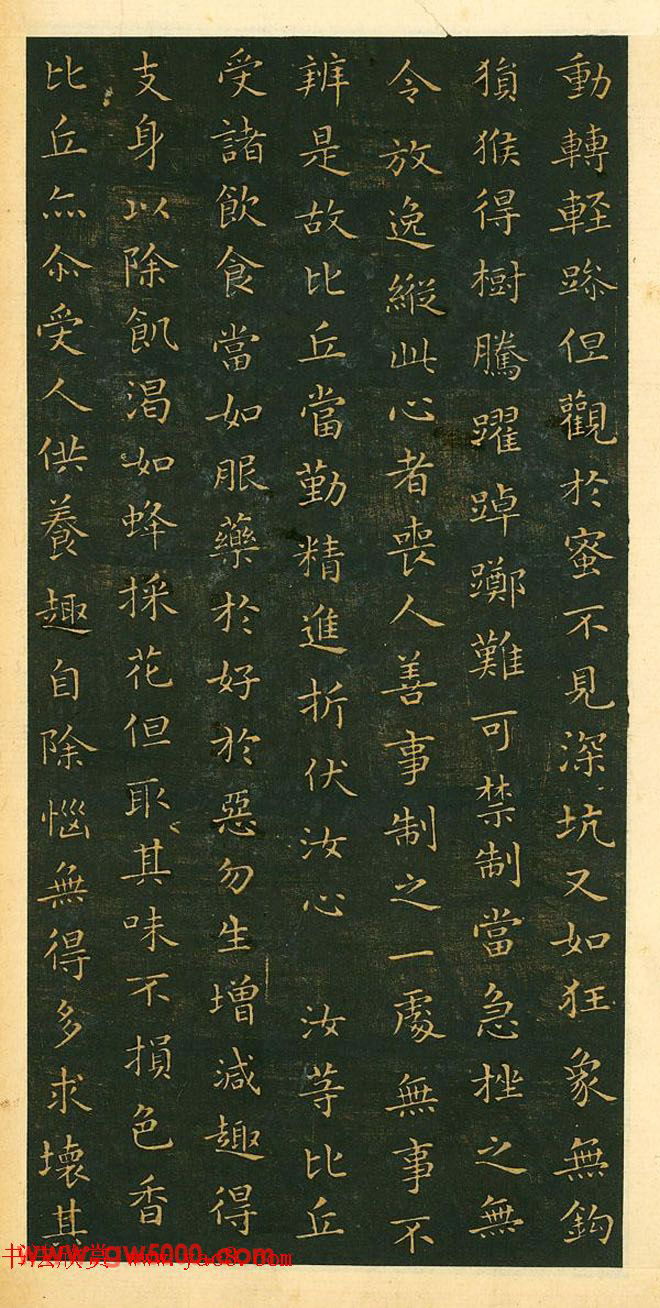 動轉輕踪但觀於蜜不見深坑又如狂象無鈎
猨猴得樹騰躍踔躑難可禁制當急挫之無
令放逸縱此心者喪人善事制之一處無事不
辨是故比丘當勤精進折伏汝心 汝等比丘
受諸飲食當如服藥於好於惡勿生增減趣得
支身以除飢渴如蜂採花但取其味不損色香
比丘亦尒受人供養趣自除惱無得多求壞其